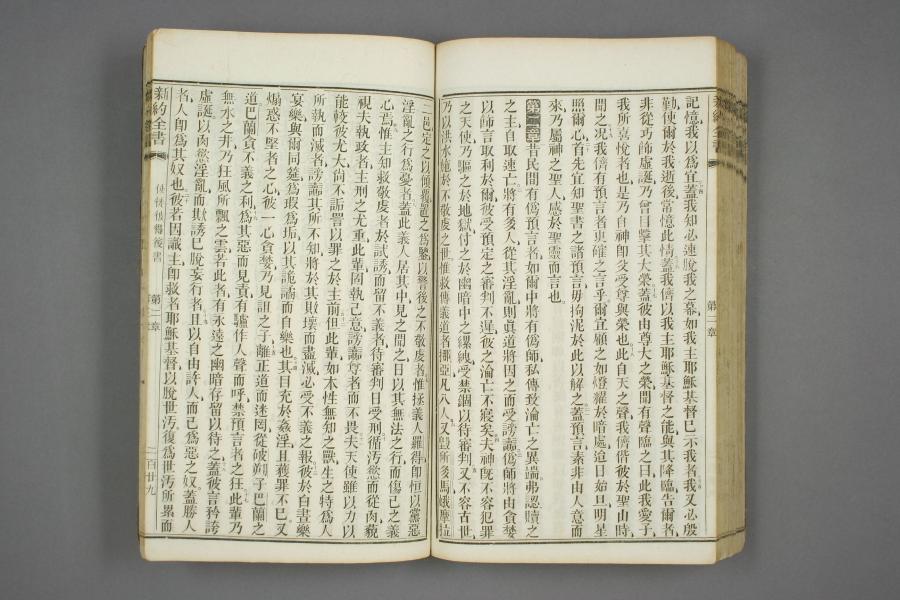 新約全書
第一章
記憶我以爲宜蓋我知必速脫我之幕如我主耶穌基督已示我者又必殷
勤使爾於我逝後常憶此情蓋我儕以我主耶穌基督之能與其降臨告爾者
非從巧飾虛誕乃曾目擊其大榮蓋彼由尊大之榮間有聲臨之曰此我愛子
我所喜悅者也是乃自神卽父受尊與榮也此自天之聲我儕偕彼於聖山時
聞之况我儕有預言者更確之言乎爾宜顧之如燈耀於暗處迨日始旦明星
照爾心首先宜知聖書之諸預言毋拘泥於此以解之蓋預言素非由人意而
來乃屬神之聖人感於聖靈而言也
第二章昔民間有僞預言者如爾中將有僞師私傳致淪亡之異端弗認贖之
之主自取速亡將有多人從其淫亂則眞道將因之而受謗讟僞師將由貪婪
以飾言取利於爾彼受預定之審判不遲彼之淪亡不寐矣夫神旣不容犯罪
之天使乃驅之於地獄付之於幽暗中之縲絏受禁錮以待審判又不容古世
乃以洪水施於不敬虔之世惟救傳義道者挪亞凡八人又毀所多馬蛾摩拉
二邑定之以傾覆置之爲鑒以警後之不敬虔者惟拯義人羅得卽恒以黨惡
淫亂之行爲憂者蓋此義人居其中見之聞之日以其無法之行而傷己之義
心焉惟主知救敬虔者於試誘而留不義者待審判日受刑循汚慾而從肉藐
視夫執政者主刑之尤重此輩罔執己意謗讟尊者而不畏夫天使雖以力以
能較彼尤大尙不詬詈以罪之於主前但此輩如本性無知之獸生之特爲人
所執而滅者謗讟其所不知將於其敗壞而盡滅必受不義之報彼於白晝樂
宴樂與爾同筵爲瑕爲垢以其詭譎而自樂也其目充於姦淫且獲罪不已又
煽惑不堅者之心彼一心貪婪乃見詛之子離正道而迷罔從破訶子巴蘭之
道巴蘭貪不義之利爲其惡而見責有驢作人聲而呼禁預言者之狂此輩乃
無水之井乃狂風所飄之雲若此者有永遠之幽暗存留以待之蓋彼言矜誇
虛誕以肉慾淫亂而欺誘已脫妄行者且以自由許人而己爲惡之奴蓋勝人
者人卽爲其奴也彼若因識主卽救者耶穌基督以脫世汚復爲世汚所累而
新約全書
使徒彼得後書
第二章
一百廿九